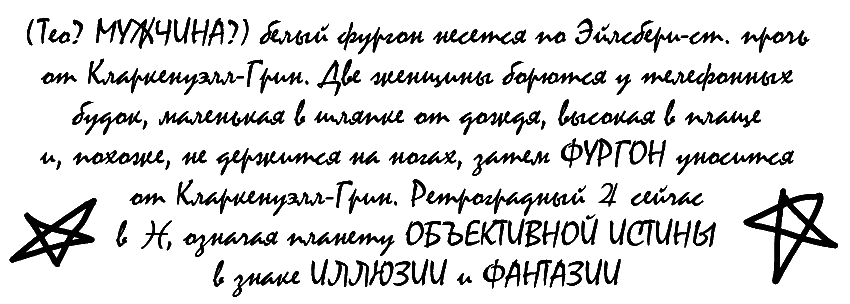 (Тео? МУЖЧИНА?) белый фургон несется по Эйлсбери-ст. прочь
от Кларкенуэлл-Грин. Две женщины борются у телефонных
будок, маленькая в шляпке от дождя, высокая в плаще
и, похоже, не держится на ногах, затем ФУРГОН уносится
от Кларкенуэлл-Грин. Ретроградный ♃ сейчас
в ♓, означая планету ОБЪЕКТИВНОЙ ИСТИНЫ
в знаке ИЛЛЮЗИИ и ФАНТАЗИИ